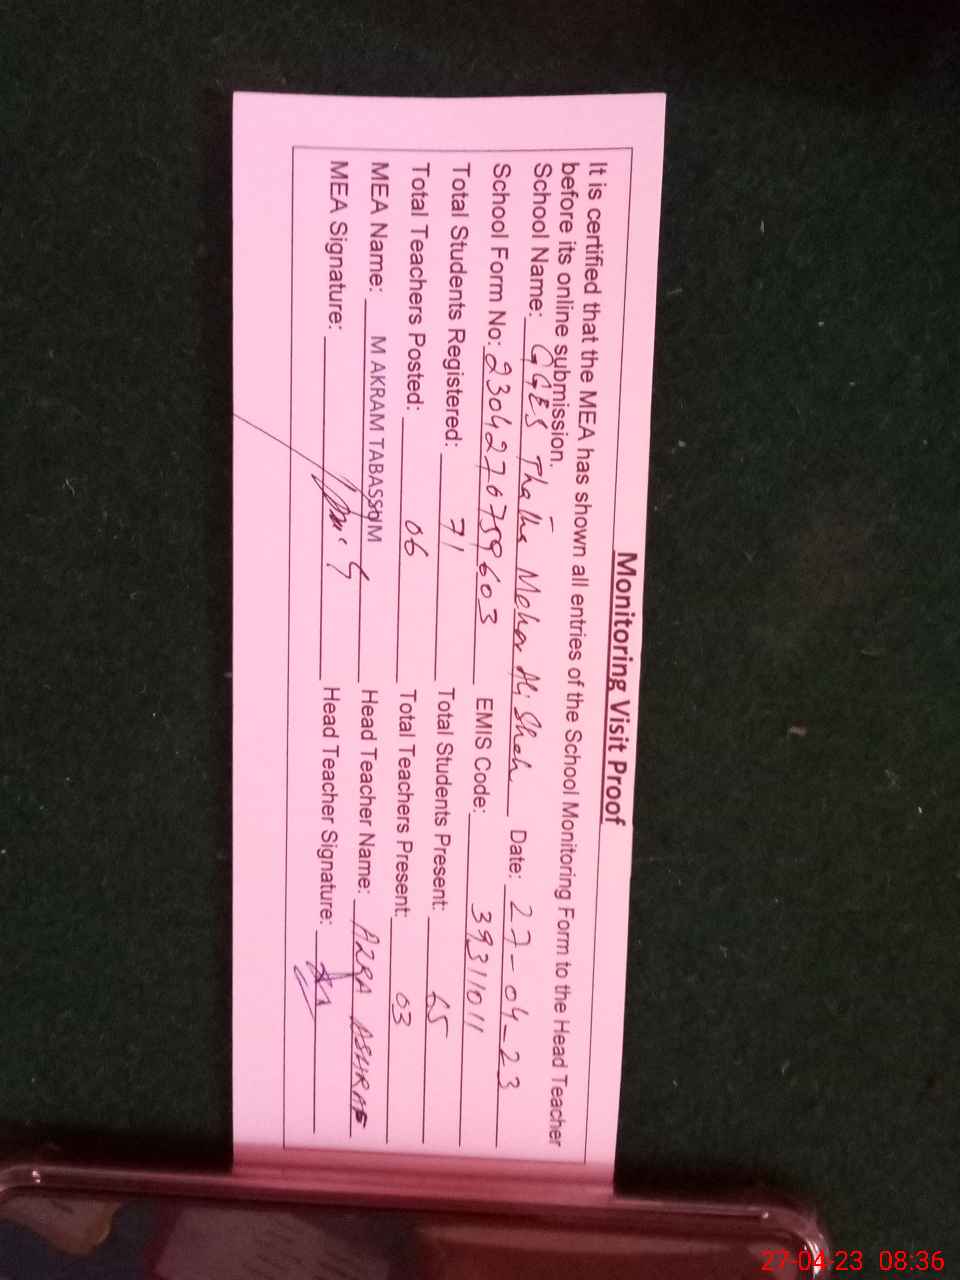 Monitoring Visit Proof
It is certified that the MEA has shown all entries of the School Monitoring Form to the Head Teacher
before its online submission.
School Name: GGES Thatha Meher Ali Shah Date: 27-04-23
School Form No: 2304270759603 EMIS Code: 39311011
Total Students Registered: 71 Total Students Present: 65
Total Teachers Posted: 06 Total Teachers Present: 03
MEA Name: M AKRAM TABASSUM Head Teacher Name: AZRA ASHRAF
MEA Signature: Head Teacher Signature:
27-04-23 08:36